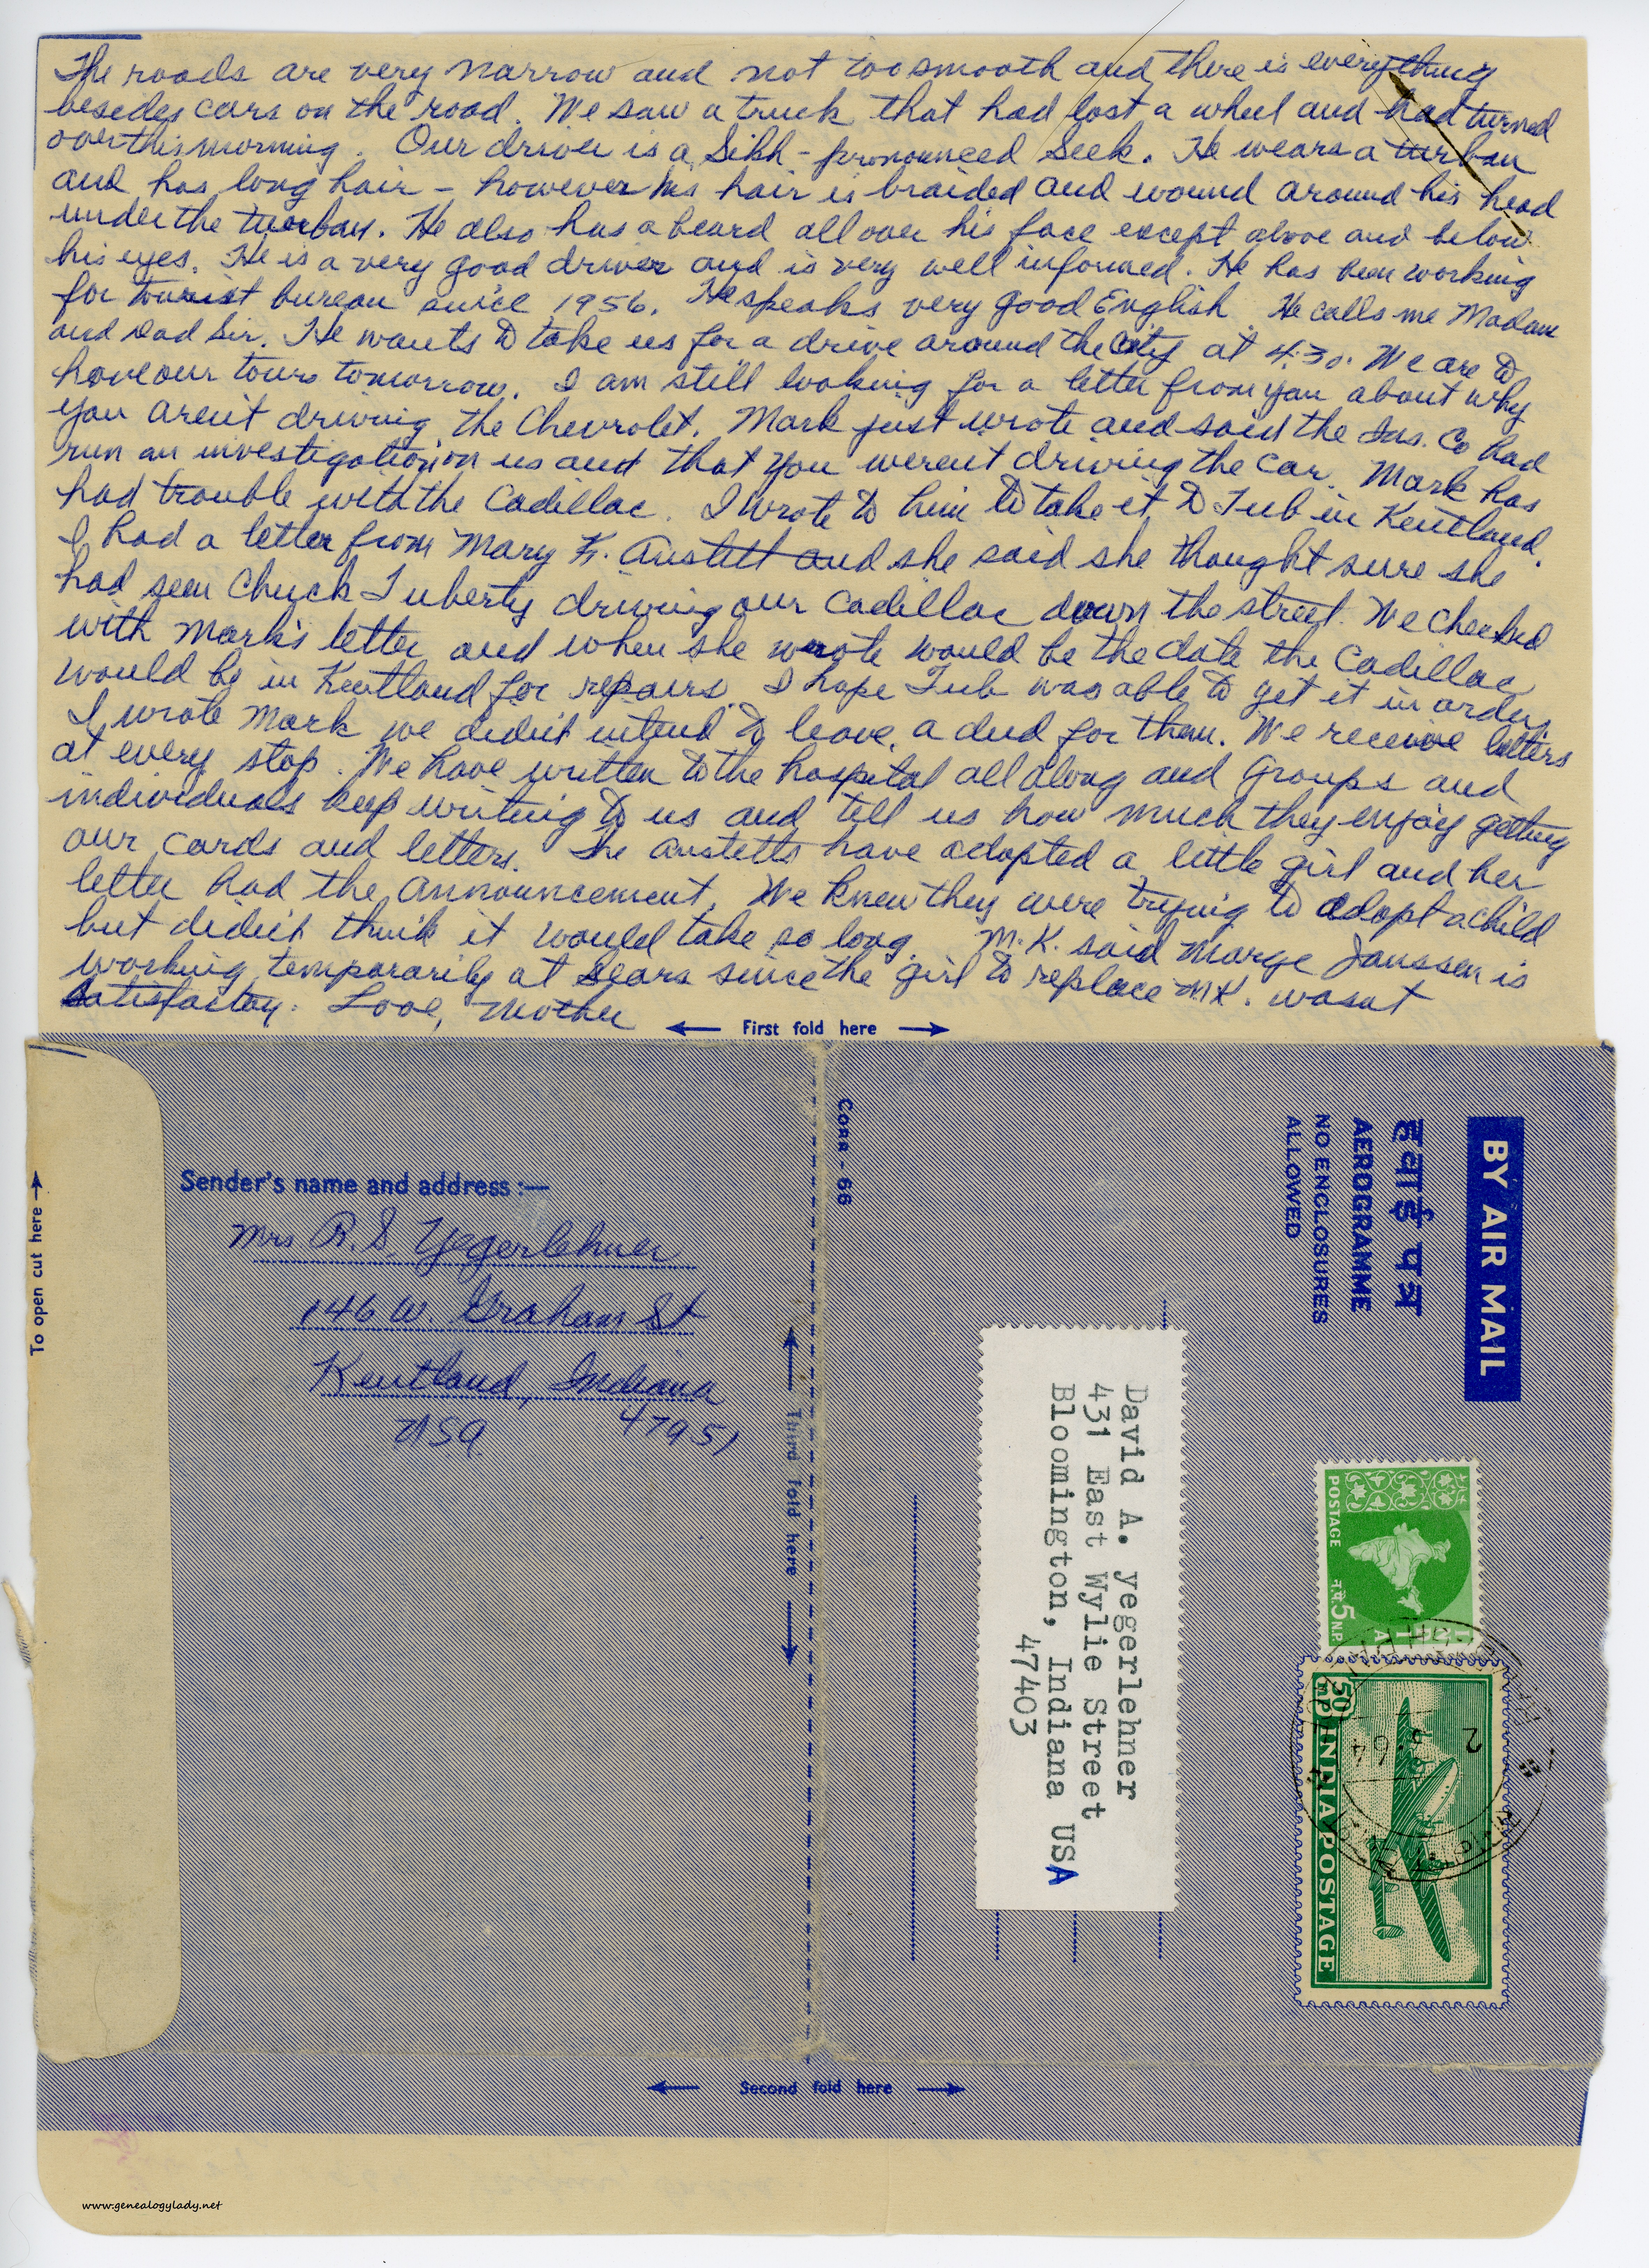 The roads are very narrow and not too smooth and there is everything
besides cars on the road. We saw a truck that had lost a wheel and had turned
over this morning. Our driver is a Sikh - pronounced Seek. He wears a turban
and has long hair - however his hair is braided and wound around his head
under the turban. He also has a beard all over his face except above and below
his eyes. He is a very good driver and is very well informed. He has been working
for tourist bureau since 1956. He speaks very good English He calls me Madam
and Dad Sir. He wants to take us for a drive around the city at 4:30. We are to
have our tours tomorrow. I am still looking for a letter from you about why
you aren't driving the Chevrolet. Mark just wrote and said the Ins. Co had
run an investigation on us and that you weren't driving the car. Mark has
had trouble with the Cadillac. I wrote to him to take it to Tub in Kentland.
I had a letter from Mary K. Austett and she said she thought sure she
had seen Chuck Tuberty driving our Cadillac down the street. We checked
with Mark's letter and when she wrote would be the date the Cadillac
would be in Kentland for repairs. I hope Tub was able to get it in order,
I wrote Mark we didn't intend to leave a dud for them. We receive letters
at every stop. We have written to the hospital all along and groups and
individuals keep writing to us and tell us how much they enjoy getting
our cards and letters. The Austetts have adopted a little girl and her
letter had the announcement. We knew they were trying to adopt a child
but didn't think it would take so long. M.K. said Marge Janssen is
working temporarily at Sears since the girl to replace M.K. wasn't
satisfactory. Love, Mother
← First fold here →
Sender's name and address :—
Mrs. R. S. Yegerlehner
146 W. Graham St
Kentland, Indiana
USA 47951
To open cut here →
Third fold here
CORR - 66
BY AIR MAIL
हवाई पत्र
AEROGRAMME
NO ENCLOSURES
ALLOWED
David A. yegerlehner
431 East Wylie Street
Bloomington, Indiana USA
47403
POSTAGE न.पै. 5 N.P.
50 nP INDIA POSTAGE
2
3.64
← Second fold here →
www.genealogylady.net